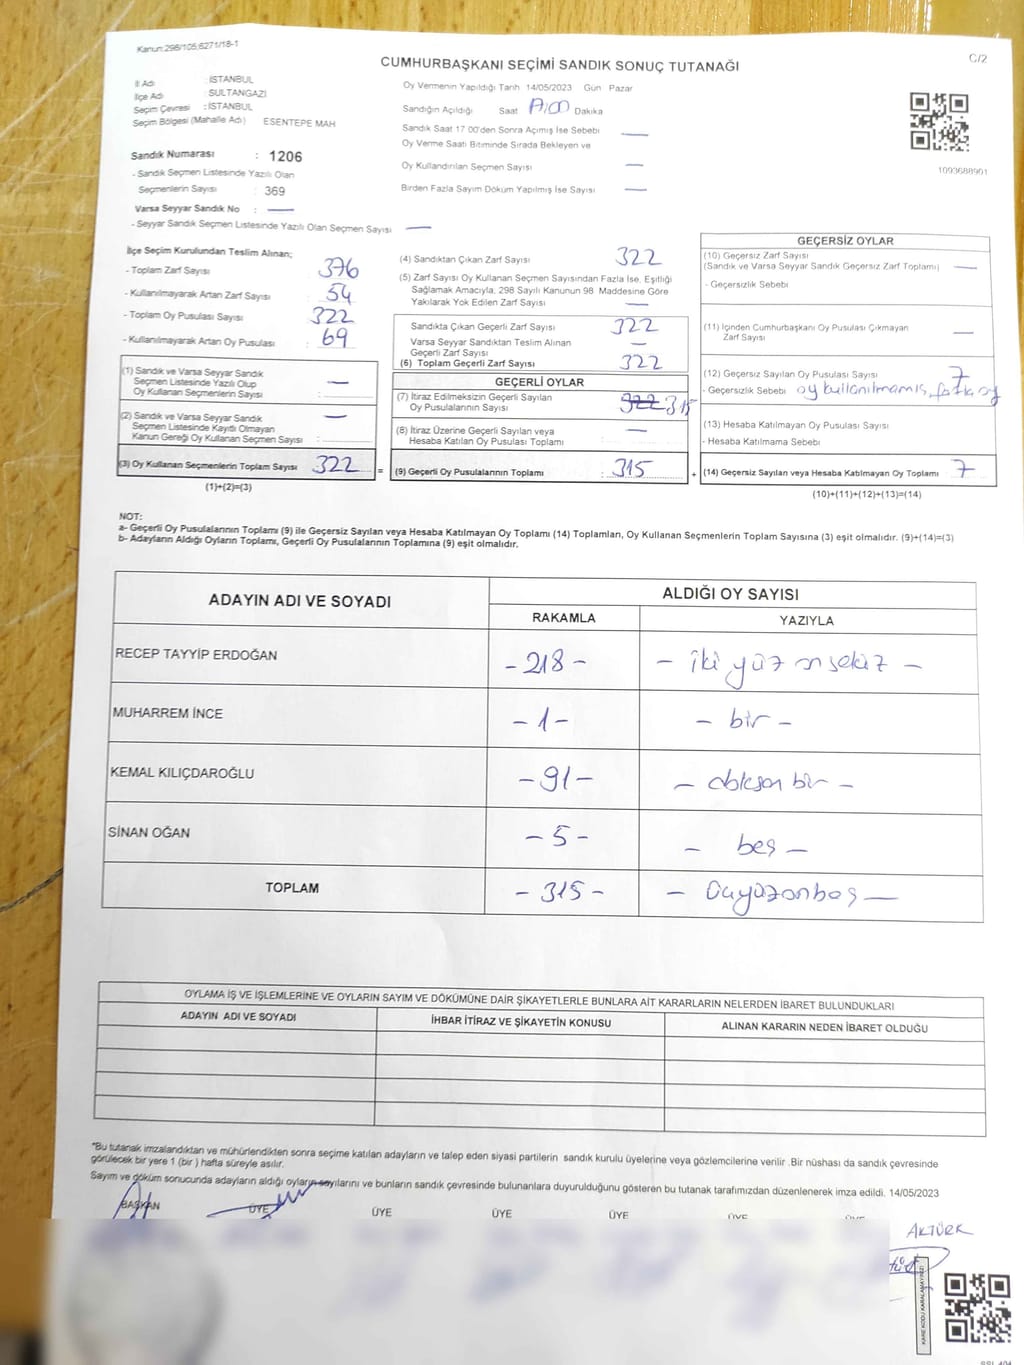 Kanun:298/105;6271/18-1
C/2
CUMHURBAŞKANI SEÇİMİ SANDIK SONUÇ TUTANAĞI
İl Adı : İSTANBUL
İlçe Adı : SULTANGAZİ
Seçim Çevresi : İSTANBUL
Seçim Bölgesi (Mahalle Adı) ESENTEPE MAH
Sandık Numarası : 1206
- Sandık Seçmen Listesinde Yazılı Olan
Seçmenlerin Sayısı : 369
Varsa Seyyar Sandık No : —
- Seyyar Sandık Seçmen Listesinde Yazılı Olan Seçmen Sayısı —
Oy Vermenin Yapıldığı Tarih 14/05/2023 Gün Pazar
Sandığın Açıldığı Saat Dakika
Sandık Saat 17 00'den Sonra Açımış İse Sebebi —
Oy Verme Saati Bitiminde Sırada Bekleyen ve
Oy Kullandırılan Seçmen Sayısı —
Birden Fazla Sayım Döküm Yapılmış İse Sayısı —
1093688901
İlçe Seçim Kurulundan Teslim Alınan;
- Toplam Zarf Sayısı : 376
- Kullanılmayarak Artan Zarf Sayısı : 54
- Toplam Oy Pusulası Sayısı : 322
- Kullanılmayarak Artan Oy Pusulası : 69
(1) Sandık ve Varsa Seyyar Sandık
Seçmen Listesinde Yazılı Olup
Oy Kullanan Seçmenlerin Sayısı : —
(2) Sandık ve Varsa Seyyar Sandık
Seçmen Listesinde Kayıtlı Olmayan
Kanun Gereği Oy Kullanan Seçmen Sayısı : —
(3) Oy Kullanan Seçmenlerin Toplam Sayısı 322
(1)+(2)=(3)
(4) Sandıktan Çıkan Zarf Sayısı 322
(5) Zarf Sayısı Oy Kullanan Seçmen Sayısından Fazla İse, Eşitliği
Sağlamak Amacıyla, 298 Sayılı Kanunun 98 Maddesine Göre
Yakılarak Yok Edilen Zarf Sayısı —
Sandıkta Çıkan Geçerli Zarf Sayısı 322
Varsa Seyyar Sandıktan Teslim Alınan
Geçerli Zarf Sayısı —
(6) Toplam Geçerli Zarf Sayısı 322
GEÇERLİ OYLAR
(7) İtiraz Edilmeksizin Geçerli Sayılan
Oy Pusulalarının Sayısı 322 315
(8) İtiraz Üzerine Geçerli Sayılan veya
Hesaba Katılan Oy Pusulası Toplamı —
= (9) Geçerli Oy Pusulalarının Toplamı : 315 +
GEÇERSİZ OYLAR
(10) Geçersiz Zarf Sayısı
(Sandık ve Varsa Seyyar Sandık Geçersiz Zarf Toplamı) —
- Geçersizlik Sebebi
(11) İçinden Cumhurbaşkanı Oy Pusulası Çıkmayan
Zarf Sayısı —
(12) Geçersiz Sayılan Oy Pusulası Sayısı 7
- Geçersizlik Sebebi oy kullanılmamış, fazla oy
(13) Hesaba Katılmayan Oy Pusulası Sayısı
- Hesaba Katılmama Sebebi
(14) Geçersiz Sayılan veya Hesaba Katılmayan Oy Toplamı 7
(10)+(11)+(12)+(13)=(14)
NOT:
a- Geçerli Oy Pusulalarının Toplamı (9) ile Geçersiz Sayılan veya Hesaba Katılmayan Oy Toplamı (14) Toplamları, Oy Kullanan Seçmenlerin Toplam Sayısına (3) eşit olmalıdır. (9)+(14)=(3)
b- Adayların Aldığı Oyların Toplamı, Geçerli Oy Pusulalarının Toplamına (9) eşit olmalıdır.
ADAYIN ADI VE SOYADI ALDIĞI OY SAYISI
RAKAMLA YAZIYLA
RECEP TAYYİP ERDOĞAN -218- - iki yüz onsekiz -
MUHARREM İNCE -1- - bir -
KEMAL KILIÇDAROĞLU -91- - doksan bir -
SİNAN OĞAN -5- - beş -
TOPLAM -315- - Üçyüzonbeş -
OYLAMA İŞ VE İŞLEMLERİNE VE OYLARIN SAYIM VE DÖKÜMÜNE DAİR ŞİKAYETLERLE BUNLARA AİT KARARLARIN NELERDEN İBARET BULUNDUKLARI
ADAYIN ADI VE SOYADI İHBAR İTİRAZ VE ŞİKAYETİN KONUSU ALINAN KARARIN NEDEN İBARET OLDUĞU
"Bu tutanak imzalandıktan ve mühürlendikten sonra seçime katılan adayların ve talep eden siyasi partilerin sandık kurulu üyelerine veya gözlemcilerine verilir .Bir nüshası da sandık çevresinde
görülecek bir yere 1 (bir ) hafta süreyle asılır.
Sayım ve döküm sonucunda adayların aldığı oyların sayılarını ve bunların sandık çevresinde bulunanlara duyurulduğunu gösteren bu tutanak tarafımızdan düzenlenerek imza edildi. 14/05/2023
BAŞKAN ÜYE ÜYE ÜYE ÜYE ÜYE ÜYE
AKTÜRK